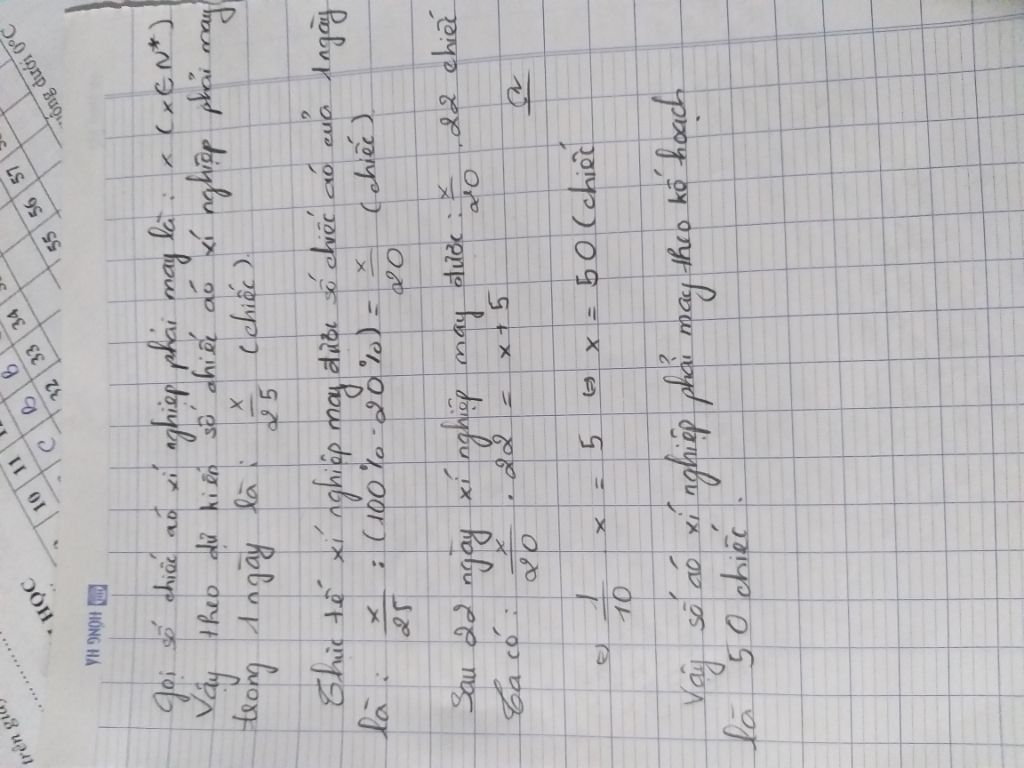 HỒNG HÀ
Gọi số chiếc áo xí nghiệp phải may là : x (x ∈ N*)
Vậy theo dự kiến số chiếc áo xí nghiệp phải may
trong 1 ngày là : x/25 (chiếc)
Thực tế xí nghiệp may được số chiếc áo của 1 ngày
là : x/25 : (100% - 20%) = x/20 (chiếc)
Sau 22 ngày xí nghiệp may được : x/20 . 22 chiếc
Ta có : x/20 . 22 = x + 5
⇔ 1/10 x = 5 ⇔ x = 50 (chiếc
Vậy số áo xí nghiệp phải may theo kế hoạch
là 50 chiếc .
10 11
C B B
32 33 34
55 56 57
HỌC